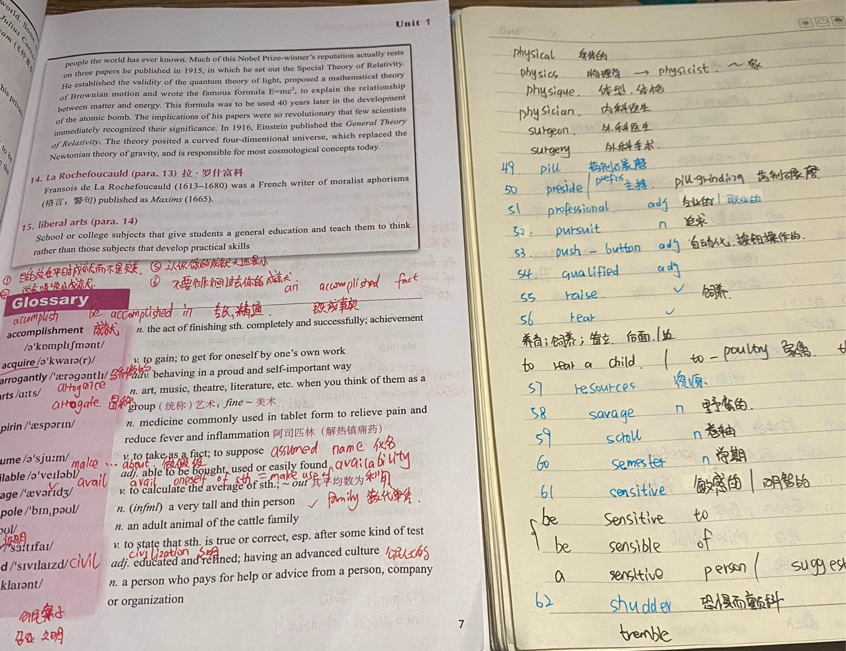 Unit 1
people the world has ever known. Much of this Nobel Prize-winner's reputation actually rests
on three papers he published in 1915, in which he set out the Special Theory of Relativity.
He established the validity of the quantum theory of light, proposed a mathematical theory
of Brownian motion and wrote the famous formula E=mc², to explain the relationship
between matter and energy. This formula was to be used 40 years later in the development
of the atomic bomb. The implications of his papers were so revolutionary that few scientists
immediately recognized their significance. In 1916, Einstein published the General Theory
of Relativity. The theory posited a curved four-dimentional universe, which replaced the
Newtonian theory of gravity, and is responsible for most cosmological concepts today.
14. La Rochefoucauld (para. 13) 拉·罗什富科
Fransois de La Rochefoucauld (1613–1680) was a French writer of moralist aphorisms
(格言,警句) published as Maxims (1665).
15. liberal arts (para. 14)
School or college subjects that give students a general education and teach them to think
rather than those subjects that develop practical skills
an accomplished fact
Glossary
be accomplished in
既成事实
accomplishment 成就
n. the act of finishing sth. completely and successfully; achievement
/ə'kɒmplɪʃmənt/
acquire /ə'kwaɪə(r)/
v. to gain; to get for oneself by one's own work
arrogantly /'ærəgəntlɪ/
adv. behaving in a proud and self-important way
arts /ɑːts/
arrogance
n. art, music, theatre, literature, etc. when you think of them as a
group (统称) 艺术, fine ~ 美术
arrogate
pirin /'æspərɪn/
n. medicine commonly used in tablet form to relieve pain and
reduce fever and inflammation 阿司匹林 (解热镇痛药)
ume /ə'sjuːm/
v. to take as a fact; to suppose
assumed name 化名
ilable /ə'veɪləbl/
adj. able to be bought, used or easily found
availability
avail
avail oneself of sth = make use of 利用
age /'ævərɪdʒ/
v. to calculate the average of sth.; ~ out 其平均数为
pole /'biːnˌpəʊl/
n. (infml) a very tall and thin person
family
n. an adult animal of the cattle family
v. to state that sth. is true or correct, esp. after some kind of test
civilization 文明
d /'sɪvɪlaɪzd/ civil
adj. educated and refined; having an advanced culture
klaɪənt/
n. a person who pays for help or advice from a person, company
or organization
7
Date
physical 身体的
physics 物理学 → physicist. ~家
physique. 体型, 体格
physician. 内科医生
surgeon. 外科医生
surgery 外科手术.
49 pill
50 preside / prefix 主持 pill-grinding
51 professional adj 专业的 / 职业的
52. pursuit n 追求
53. push-button adj 自动化, 按钮操作的.
54. qualified adj
55 raise. v 饲养.
56 rear v
养育; 饲养; 竖立. 后面.
to rear a child. / to - poultry 家禽.
57 resources 资源.
58 savage n 野蛮的.
59 scroll n 卷轴
60 semester n 学期
61 sensitive 敏感的 / 明智的
be sensitive to
be sensible of
a sensitive person / sugges
62 shudder 恐惧而颤抖
tremble